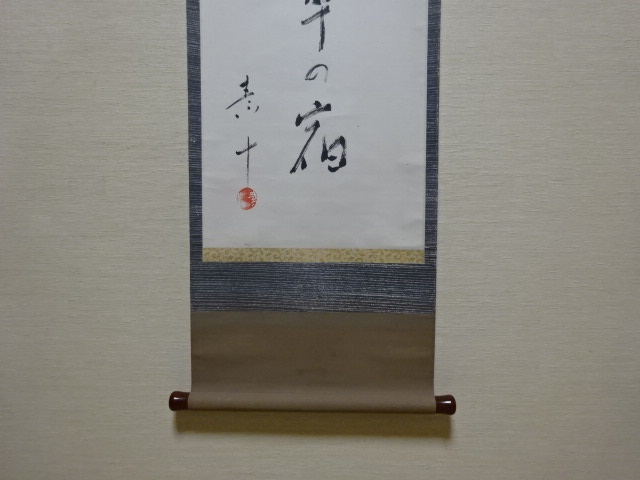 の宿
素十